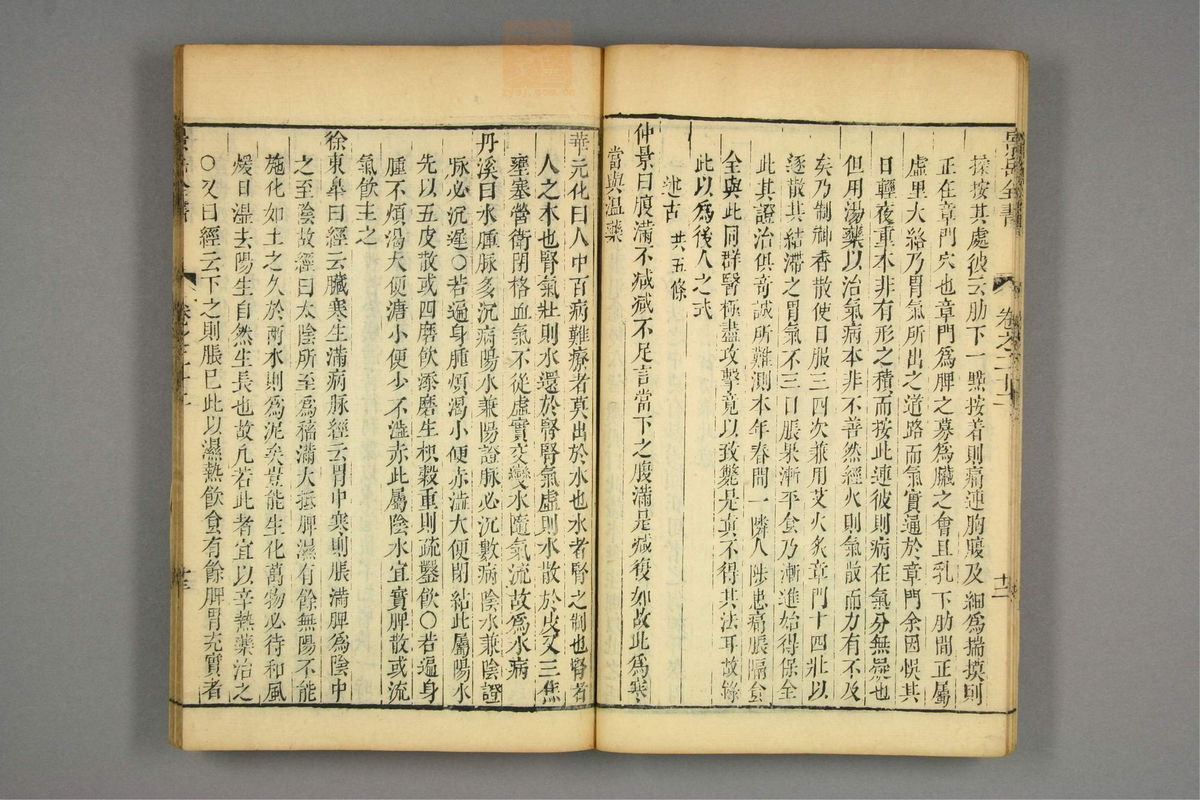 景岳全書
卷之二十二
十二
揉按其處彼云肋下一點按着則痛連胸腹及細為揣摸則
正在章門穴也章門為脾之募為臟之會且乳下肋間正屬
虛里大絡乃胃氣所出之道路而氣實通於章門余因悞其
日輕夜重本非有形之積而按此連彼則病在氣分無疑也
但用湯藥以治氣病本非不善然經火則氣散而力有不及
矣乃制神香散使日服三四次兼用艾火灸章門十四壯以
逐散其結滯之胃氣不三日脹果漸平食乃漸進始得保全
此其證治俱奇誠所難測本年春間一隣人陟患痛脹隔食
全與此同群醫極盡攻擊竟以致斃是真不得其法耳故錄
此以為後人之式
述古 共五條
仲景曰腹滿不減減不足言當下之腹滿是減復如故此為寒
當與溫藥
華元化曰人中百病難療者莫出於水也水者腎之制也腎者
人之本也腎氣壯則水還於腎腎氣虛則水散於皮又三焦
壅塞營衛閉格血氣不從虛實交變水隨氣流故為水病
丹溪曰水腫脉多沉病陽水兼陽證脉必沉數病陰水兼陰證
脉必沉遲○若遍身腫煩渴小便赤澁大便閉結此屬陽水
先以五皮散或四磨飲添磨生枳殼重則疏鑿飲○若遍身
腫不煩渴大便溏小便少不澁赤此屬陰水宜實脾散或流
氣飲主之
徐東臯曰經云臟寒生滿病脉經云胃中寒則脹滿脾為陰中
之至陰故經曰太陰所至為稸滿大抵脾濕有餘無陽不能
施化如土之久於雨水則為泥矣豈能生化萬物必待和風
煖日濕去陽生自然生長也故凡若此者宜以辛熱藥治之
○又曰經云下之則脹已此以濕熱飲食有餘脾胃充實者
景岳全書
卷之二十二
十三